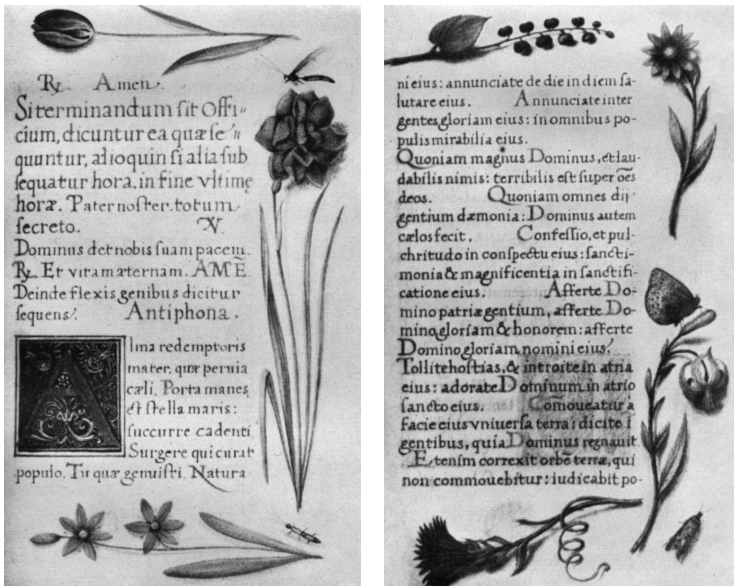 R/. Amen.
Si terminandum sit Offi=
cium, dicuntur ea quæ se=
quuntur, alioquin si alia sub
sequatur hora, in fine vltime
horæ. Pater noster. totum
secreto. V.
Dominus det nobis suam pacem.
R/. Et vitam æternam. AMĒ.
Deinde flexis genibus dicitur
sequens. Antiphona.
Alma redemptoris
mater, quæ peruia
cæli, Porta manes,
et stella maris:
succurre cadenti
Surgere qui curat
populo. Tu quæ genuisti. Natura
ni eius: annunciate de die in diem sa-
lutare eius. Annunciate inter
gentes gloriam eius: in omnibus po-
pulis mirabilia eius.
Quoniam magnus Dominus, et lau-
dabilis nimis: terribilis est super oēs
deos. Quoniam omnes dij
gentium dæmonia: Dominus autem
cælos fecit. Confessio, et pul-
chritudo in conspectu eius: sancti-
monia & magnificentia in sanctifi-
catione eius. Afferte Do-
mino patriæ gentium, afferte Do-
mino gloriam & honorem: afferte
Domino gloriam nomini eius.
Tollite hostias, & introite in atria
eius: adorate Dominum in atrio
sancto eius. Cōmoueatur a
facie eius vniuersa terra: dicite i
gentibus, quia Dominus regnauit.
Etenim correxit orbē terræ, qui
non commouebitur: iudicabit po-